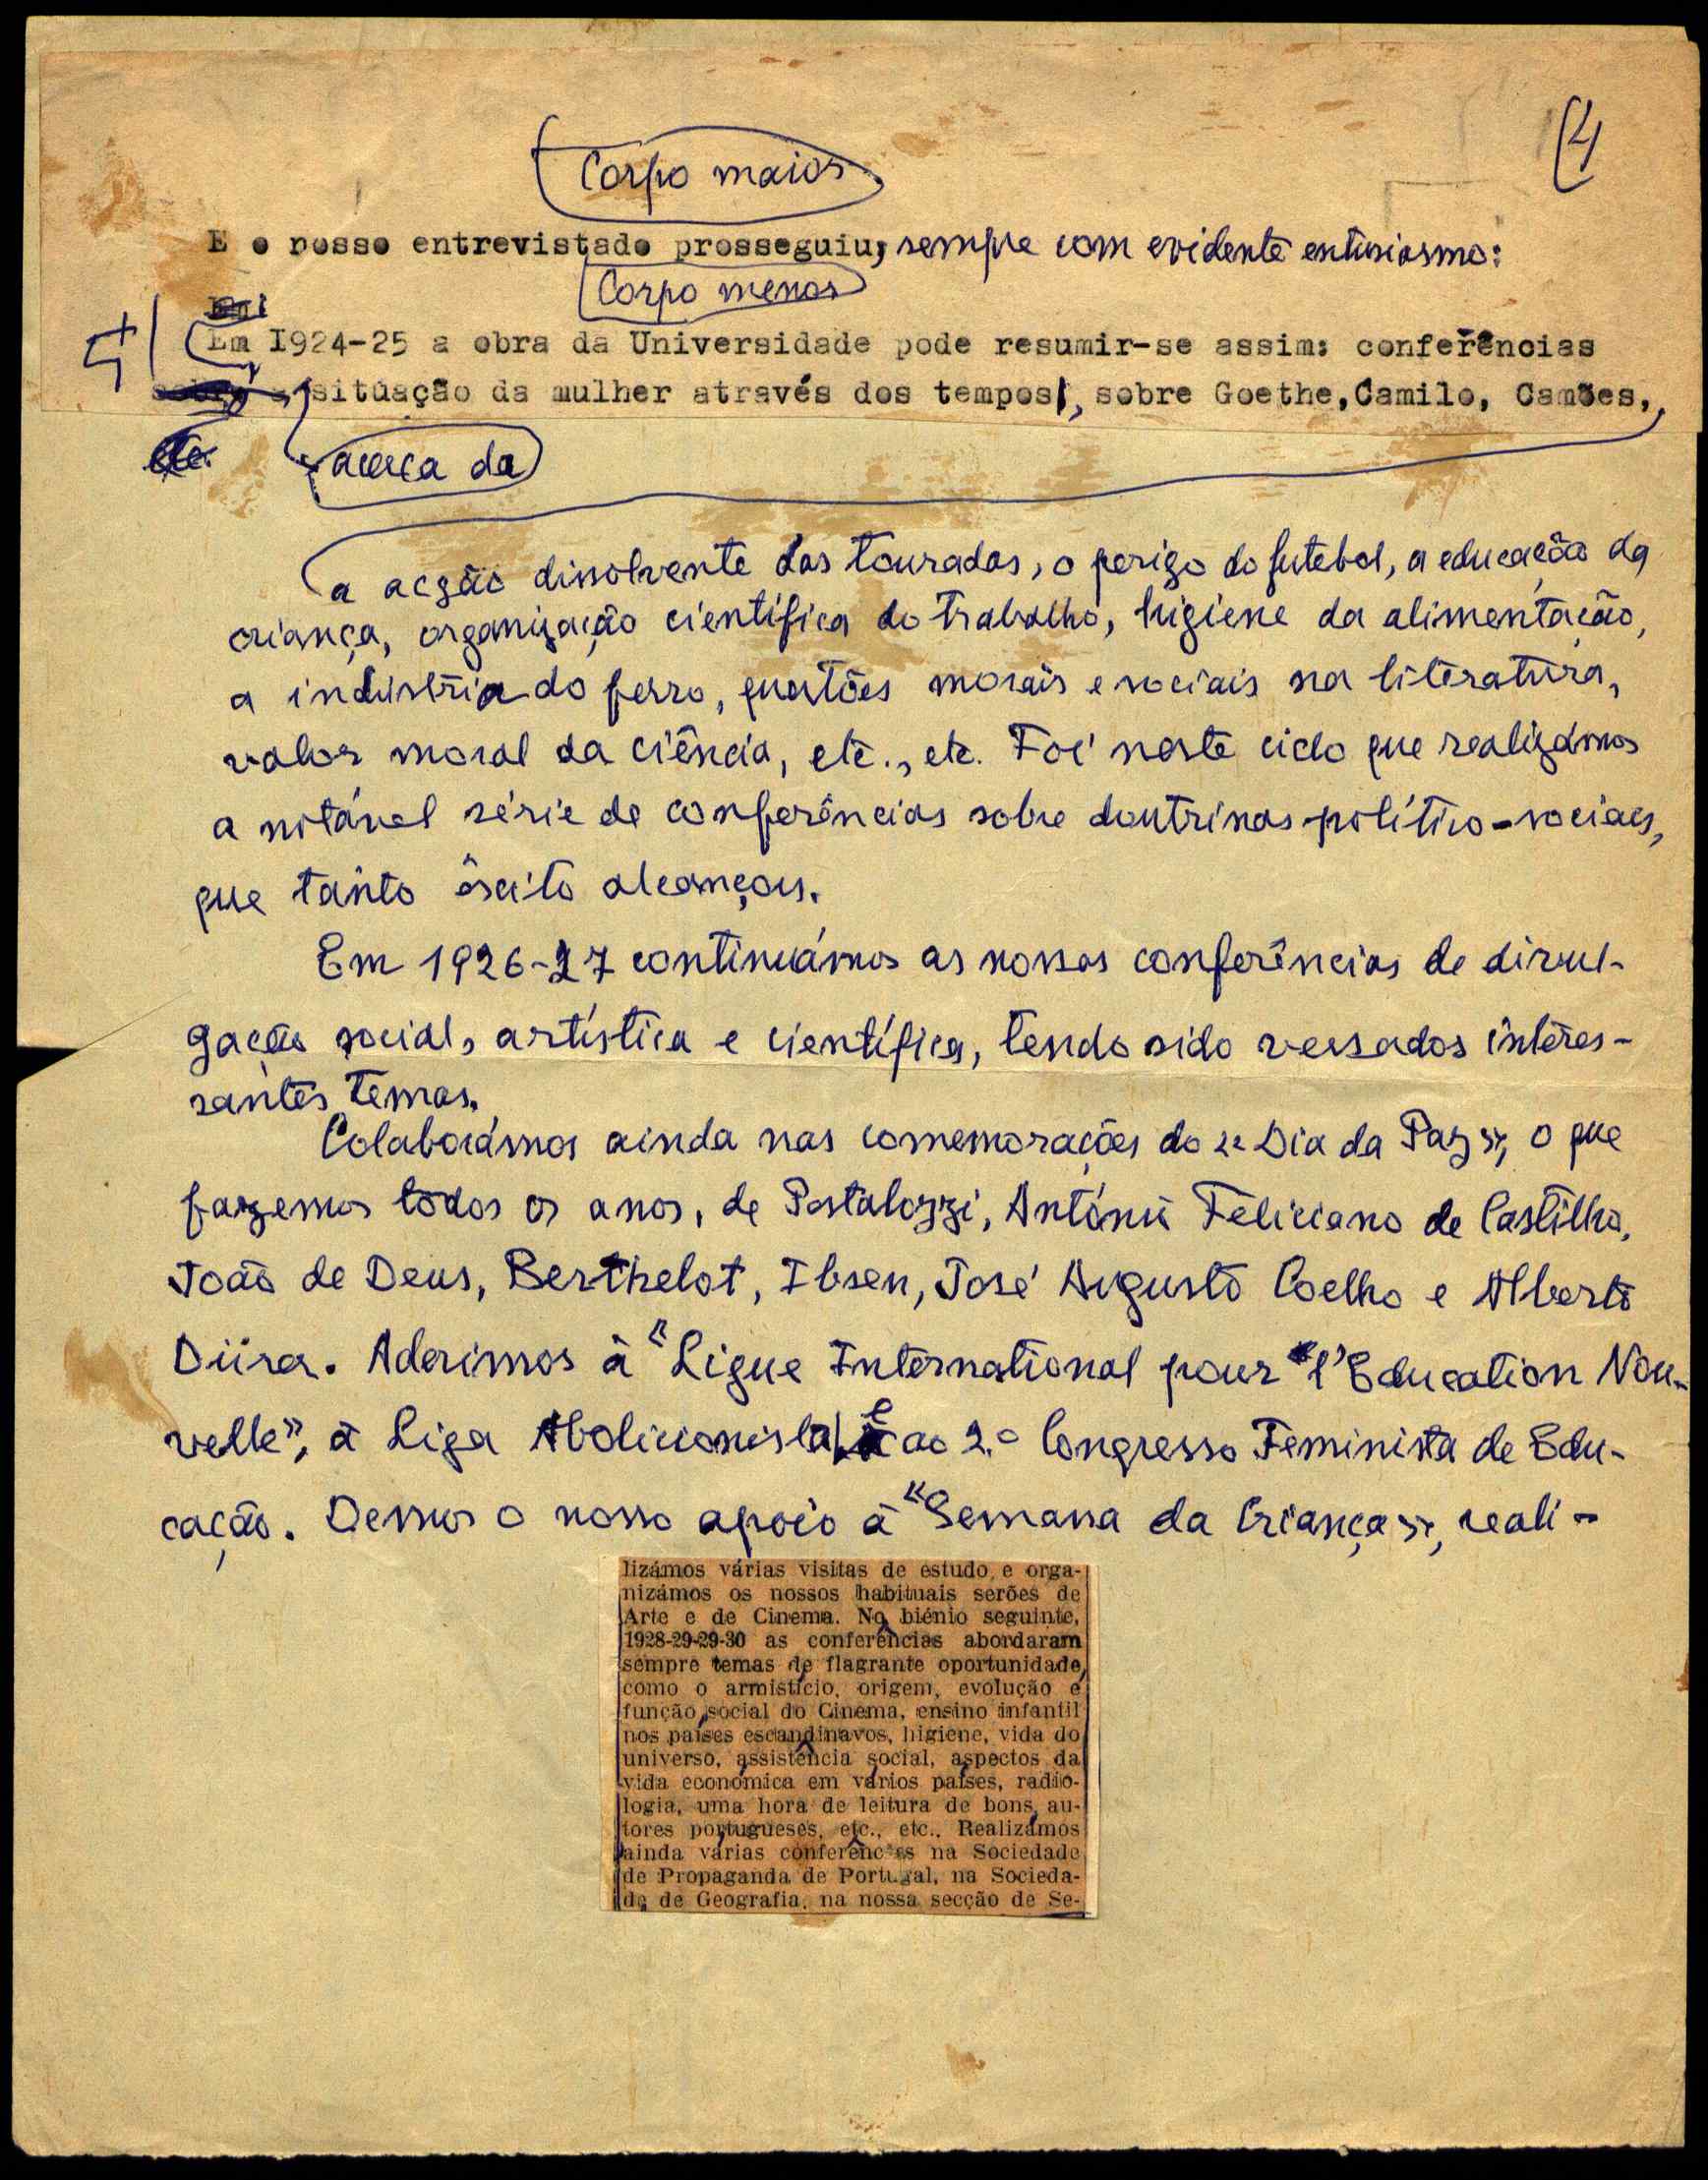 (4
Corpo maior
E o nosso entrevistado prosseguiu, sempre com evidente entusiasmo:
Corpo menor
Em 1924-25 a obra da Universidade pode resumir-se assim: conferências
situação da mulher através dos tempos, sobre Goethe, Camilo, Camões,
etc.
acerca da
a acção dissolvente das touradas, o perigo do futebol, a educação da
criança, organização científica do trabalho, higiene da alimentação,
a indústria do ferro, questões morais e sociais na literatura,
valor moral da ciência, etc., etc. Foi neste ciclo que realizámos
a notável série de conferências sobre doutrinas político-sociaes,
que tanto êxito alcançou.
Em 1926-27 continuámos as nossas conferências de divul-
gação social, artística e científica, tendo sido versados interes-
santes temas.
Colaborámos ainda nas comemorações do «Dia da Paz», o que
fazemos todos os anos, de Pestalozzi, António Feliciano de Castilho,
João de Deus, Berthelot, Ibsen, José Augusto Coelho e Alberto
Dürer. Aderimos à «Ligue International pour l'Education Nou-
velle», à Liga Abolicionista e ao 2.º Congresso Feminista de Edu-
cação. Demos o nosso apoio à «Semana da Criança», reali-
lizámos várias visitas de estudo e orga-
nizámos os nossos habituais serões de
Arte e de Cinema. No biénio seguinte,
1928-29-29-30 as conferências abordaram
sempre temas de flagrante oportunidade,
como o armistício, origem, evolução e
função social do Cinema, ensino infantil
nos países escandinavos, higiene, vida do
universo, assistência social, aspectos da
vida económica em vários países, radio-
logia, uma hora de leitura de bons au-
tores portugueses, etc., etc.. Realizámos
ainda várias conferências na Sociedade
de Propaganda de Portugal, na Socieda-
de de Geografia, na nossa secção de Se-